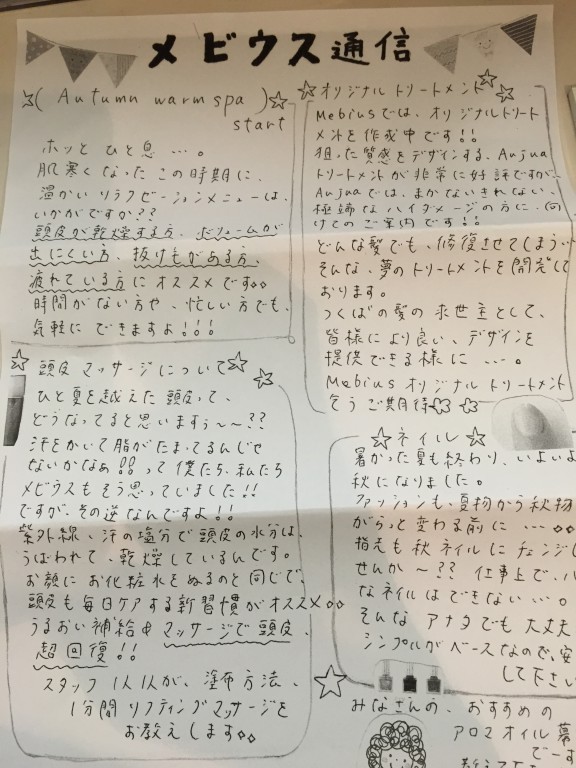 メビウス通信
(Autumn warm spa)
start
ホッと ひと息 …。
肌寒くなった この時期に、
温かい リラクゼーションメニューは、
いかがですか??
頭皮が乾燥する方、ボリュームが
出にくい方、抜けもがある方、
疲れている方に オススメです
時間がない方や、忙しい方でも、
気軽に できますよ!!!
頭皮 マッサージについて
ひと夏を越えた 頭皮って、
どうなってると思いますぅ〜〜??
汗をかいて脂がたまってるんじゃ
ないかなぁ!!って 僕たち、私たち
メビウスも そう思っていました!!
ですが、その逆なんですよ!!
紫外線、汗の塩分で 頭皮の水分は、
うばわれて、乾燥しているんです。
お顔に お化粧水をぬるのと 同じで、
頭皮も 毎日ケアする新習慣が オススメ
うるおい補給& マッサージで 頭皮
超回復!!
スタッフ 1人1人が、塗布方法、
1分間 リフティングマッサージを
お教えします
オリジナル トリートメント
Mebiusでは、オリジナルトリート
メントを 作成中です!!
狙った 質感をデザインする、Aujua
トリートメントが 非常に好評ですが、
Aujuaでは、まかないきれない、
極端な ハイダメージの方に、向
けての ご案内です!!
どんな髪でも、修復させてしまう
そんな、夢のトリートメントを 開発して
おります。
つくばの髪の 救世主として、
皆様により良い、デザインを
提供できる様に …。
Mebius オリジナル トリートメント
乞う ご期待
ネイル
暑かった夏も終わり、いよいよ
秋になりました。
ファッションも、夏物から秋物
がらっと 変わる前に …
指先も 秋ネイルに チェンジし
せんか〜?? 仕事上で、ハ
なネイルは できない …。
そんな アナタでも 大丈夫
シンプルが ベースなので、安
して下さい
みなさんの、おすすめの
アロマオイル 募
でーす